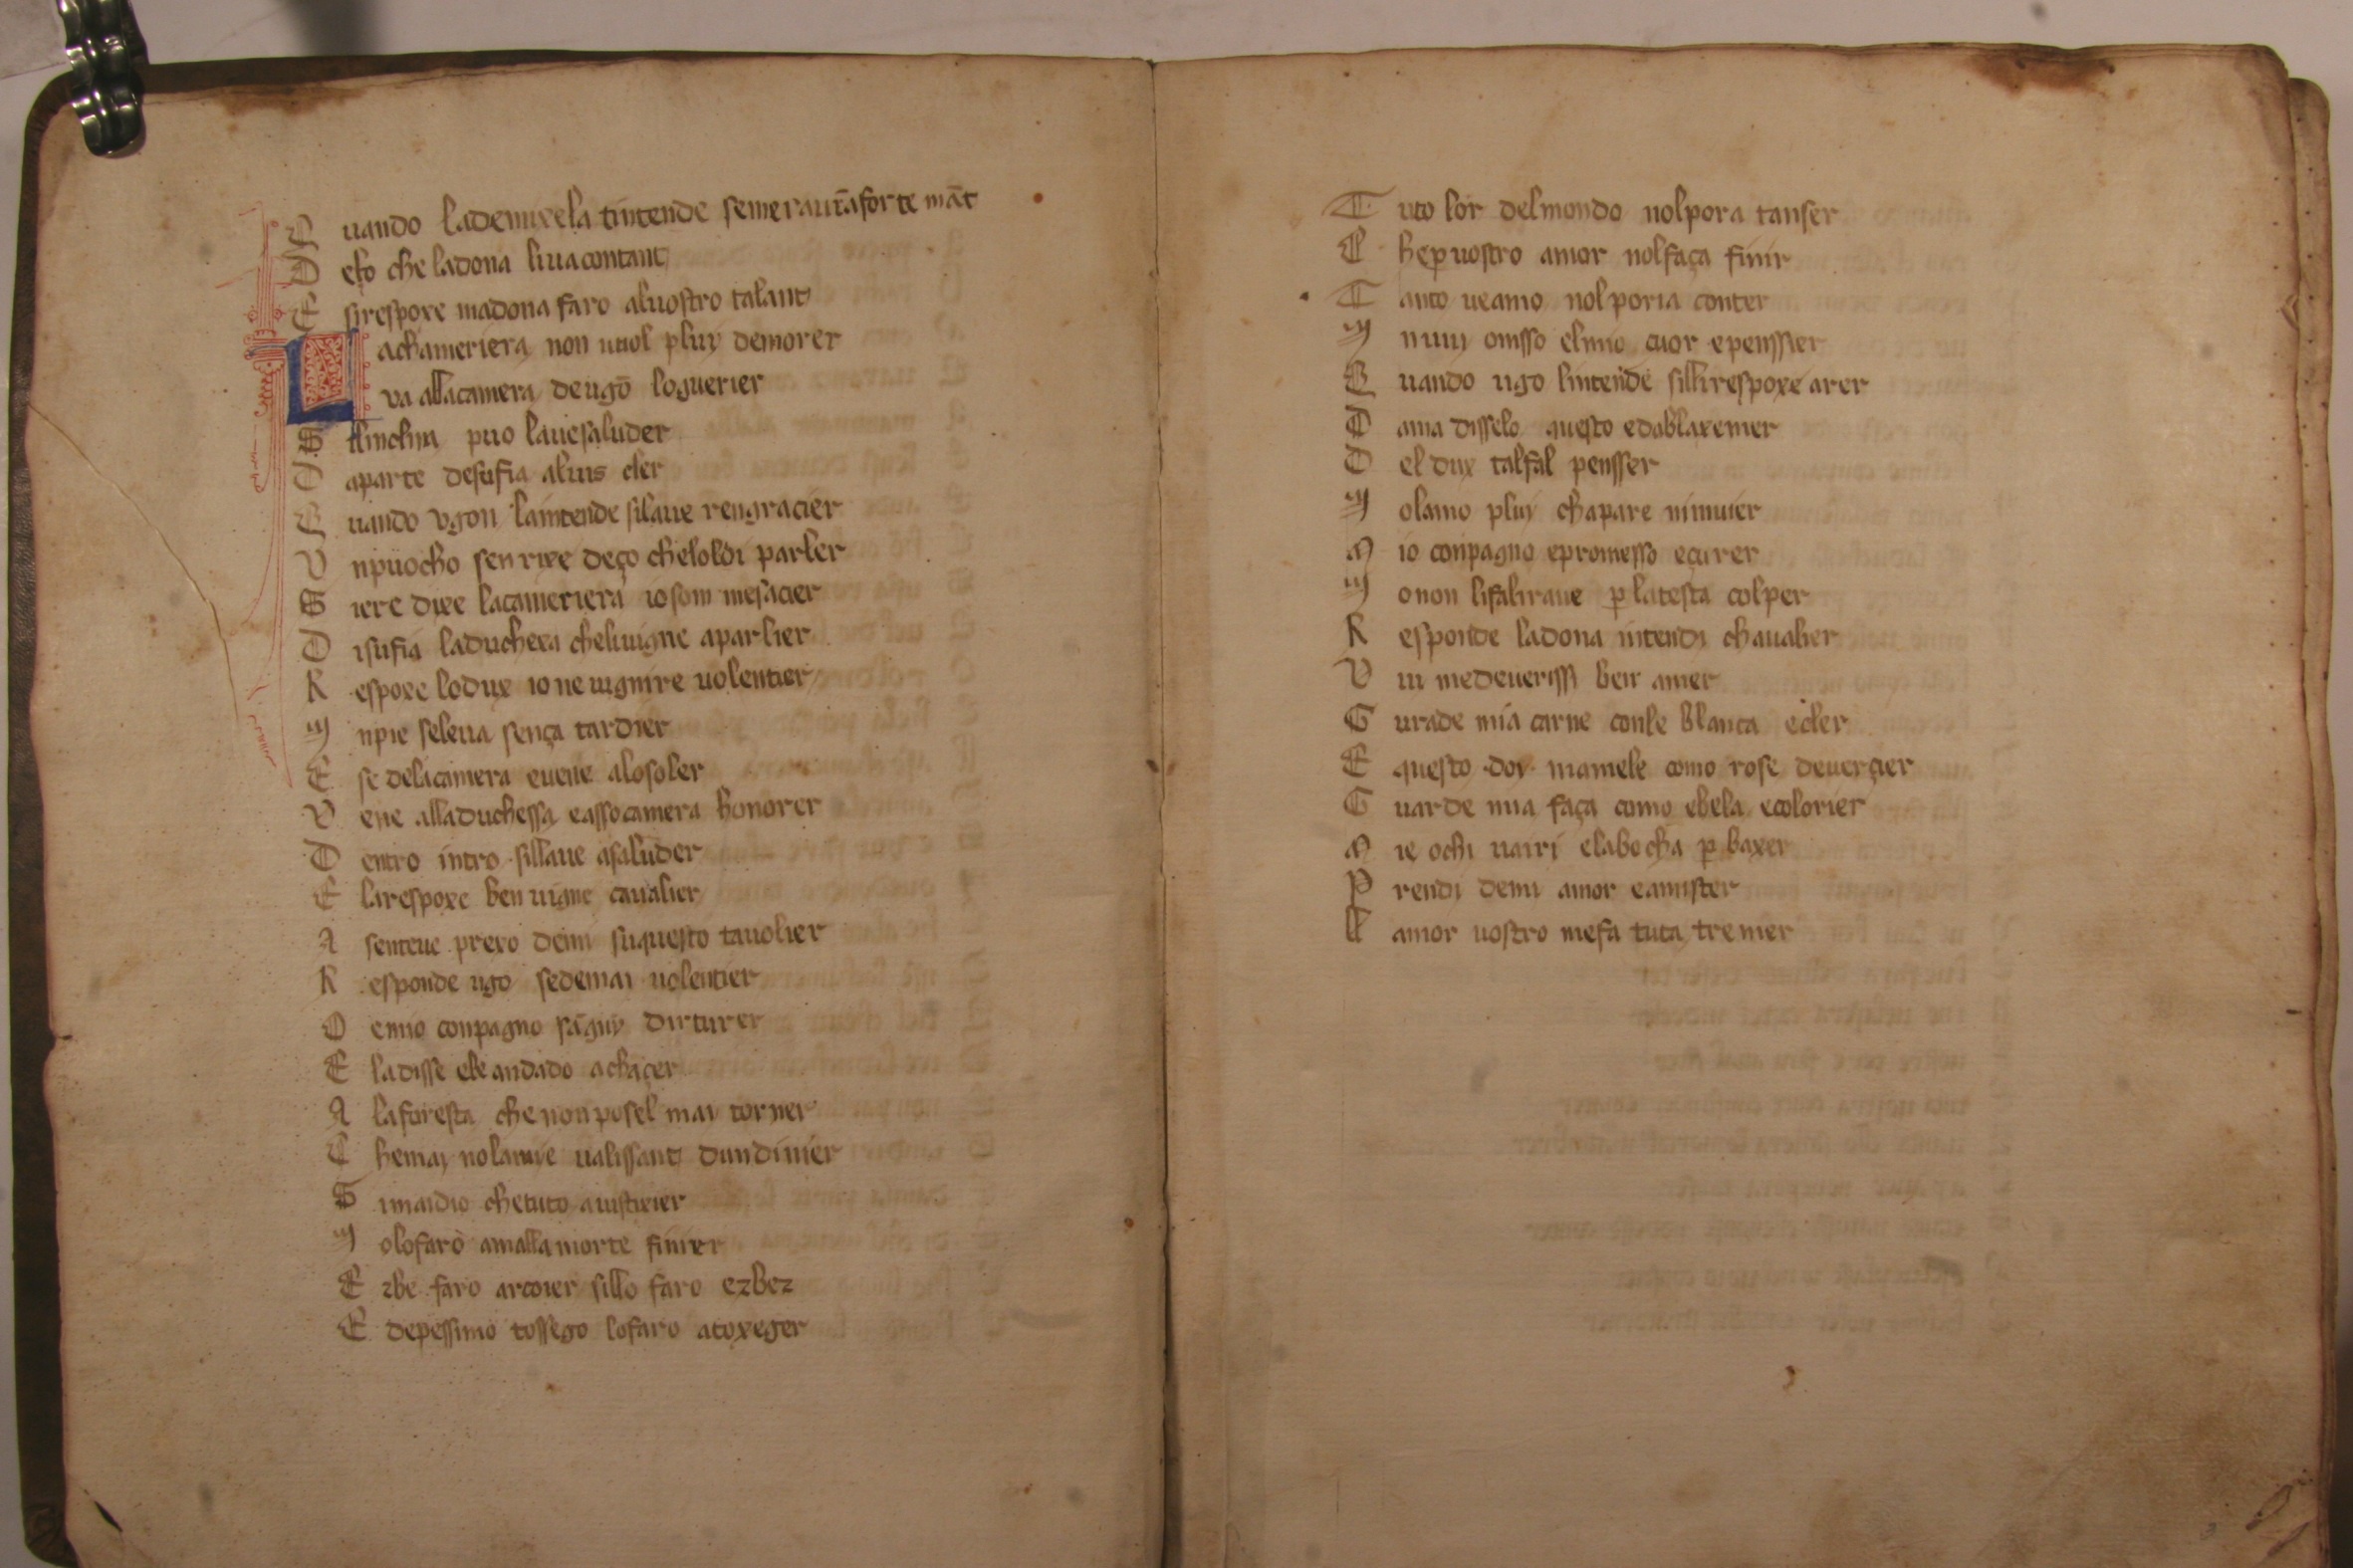 Quando lademixela tintende semeravit̄aforte māt
Deso che ladona livacontant
Esirespoxe madona faro alvostro talant
Lachameriera non vuol pluy demorer
va allacamera deugō loguerier
Sillinchina puo lavesaluder
Daparte desufia alvis cler
Quando vgon laintende silave rengracier
Vnpuocho sen rixe deço cheloldi parler
Siere dixe lacameriera iosom mesacier
Disufia laduchexa chelivigne aparlier
Respoxe lodux io ne vignire volentier
Inpie seleva sença tardier
Ese delacamera evene alosoler
Vene alladuchessa eassocamera honorer
Dentro intro sillave asaluder
Elarespoxe ben vigne cavalier
Aseteve prexo demi suquesto tavolier
Responde ugo sedemai volentier
Oemio conpagno sāguin dirturer
Eladisse ele andado achaçer
Alaforesta che non posel mai torner
Chemay nolamie valissant dundinier
Simaidio chetuto avistirier
Iolofarò amalla morte finier
Erbe faro arcoier sillo faro erber
Edepessimo tossego lofaro atoxeger
Tuto lor delmondo nolpora tanser
Chep̱ vostro amor nolfaça finir
Tanto veamo nolporia conter
In vuy omisso elmio cuor epenssier
Quando ugo lintende sillirespoxe arer
Dama disselo questo edablaxemer
Del dux talfal pensser
Iolamo pluy chapare nimuier
Mio conpagno epromesso eçurer
Ionon lifalirave p̱ latesta colper
Responde ladona intendi chavalier
Vui medeverissi ben amer
Gurade mia carne conle blanca ecler
Equesto ·doy· mamele como rose deverçier
Guarde mia faça como ebela ecolorier
Mie ochi vairi elabocha p̱ baxer
Prendi demi amor eamister
Llamor vostro mefa tuta tremer